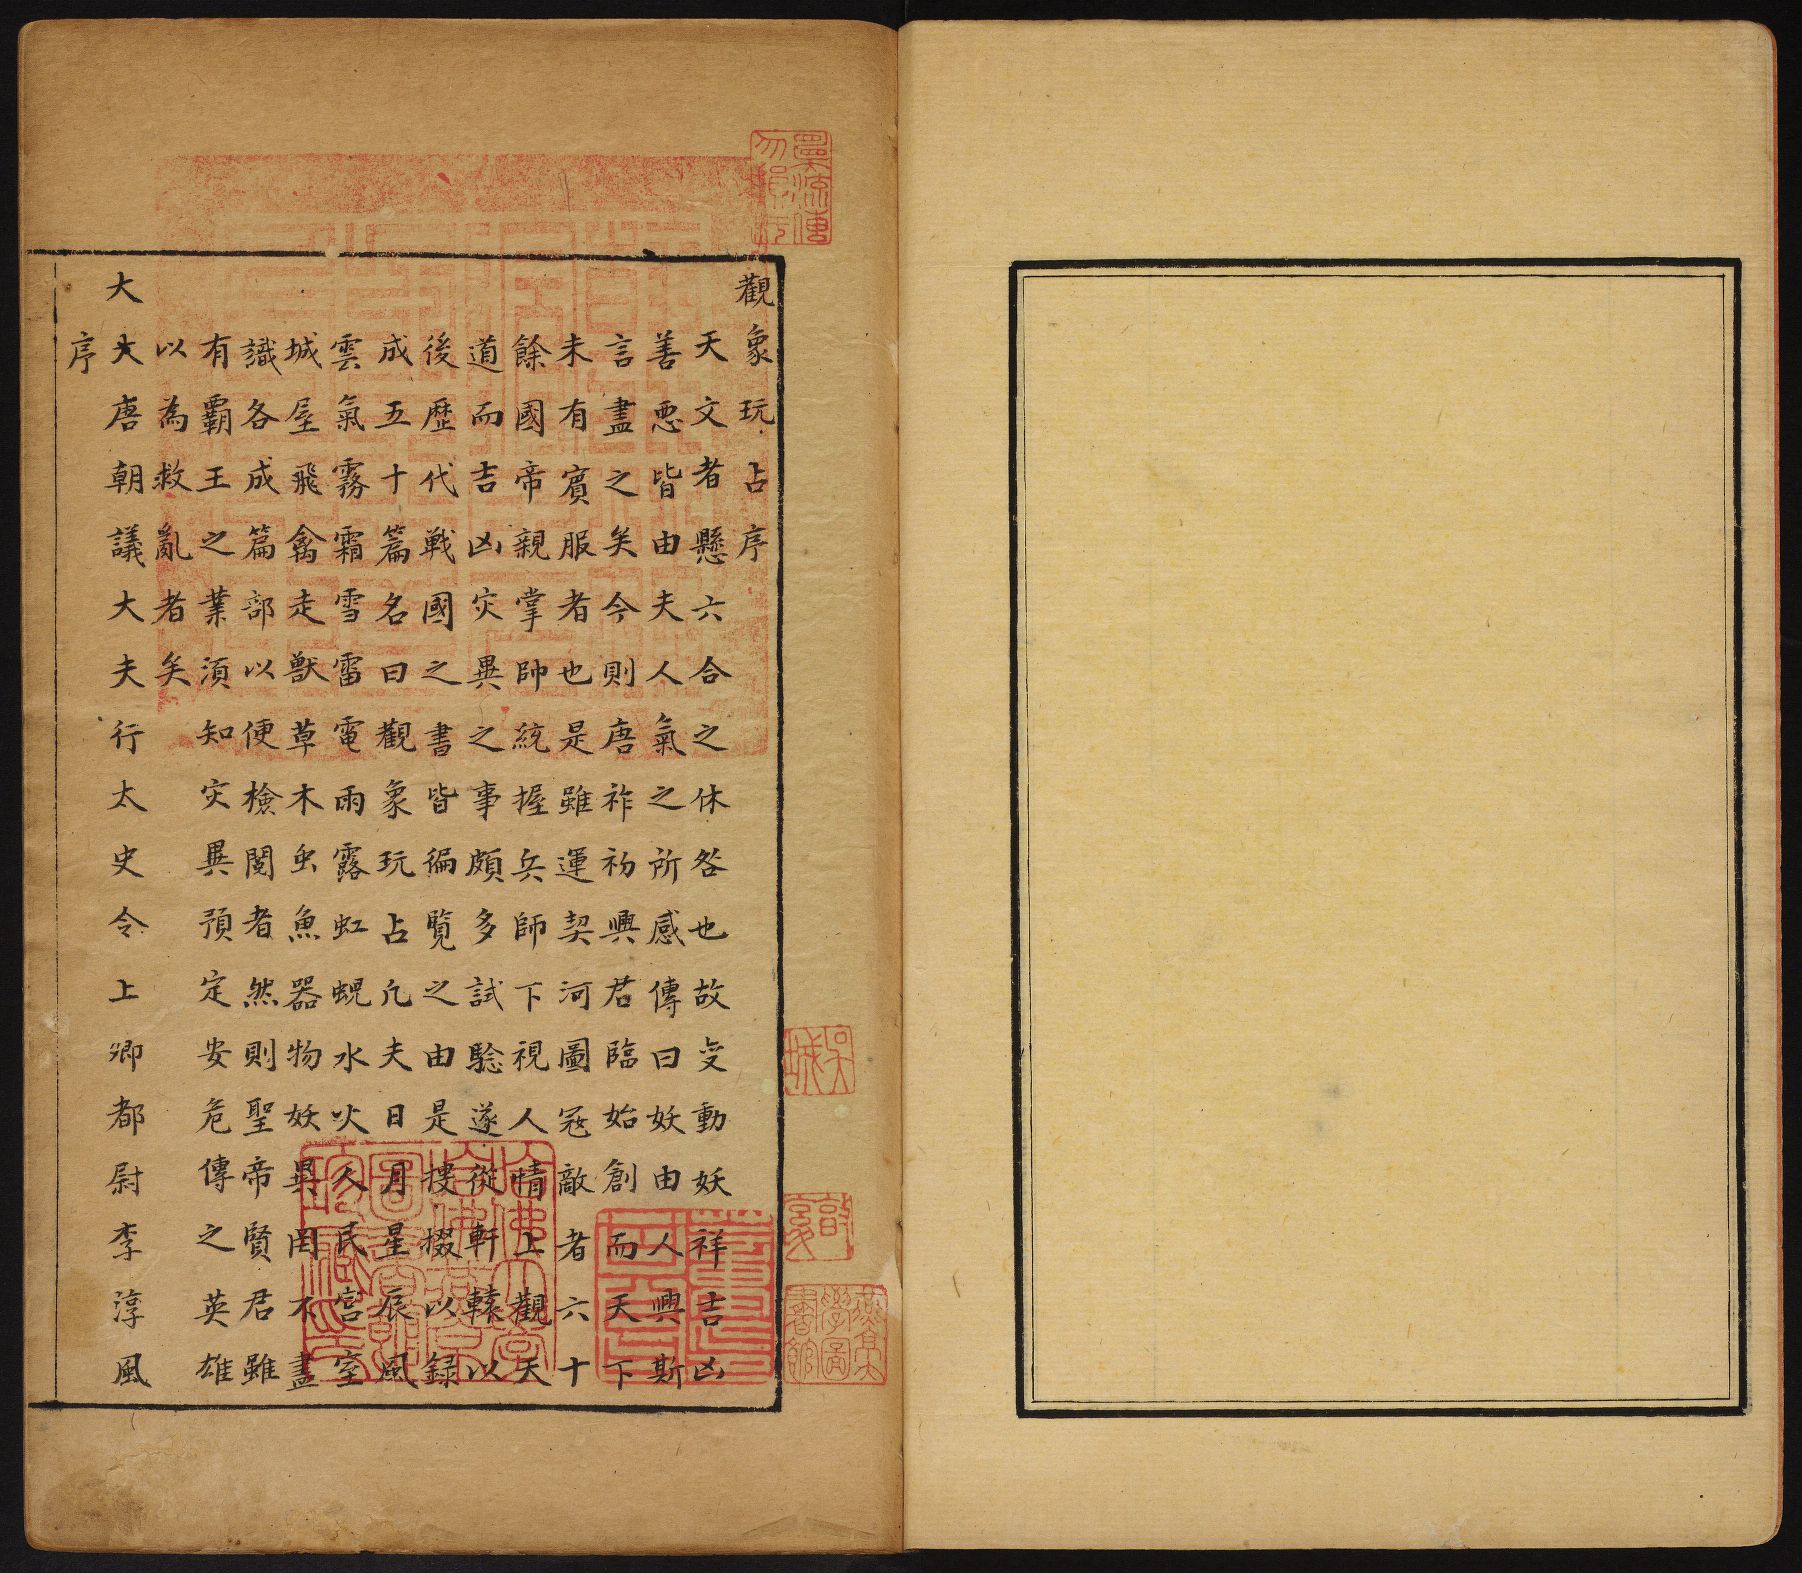 觀象玩占序
天文者懸六合之休咎也故변動妖祥吉凶
善惡皆由夫人氣之所感傳曰妖由人興斯
言盡之矣今則唐祚初興君臨始創而天下
未有賓服者也是雖運契河圖寇敵者六十
餘國帝親掌帥統握兵師下視人情上觀天
道而吉凶灾異之事頗多試驗遂從軒轅以
後歷代戰國之書皆徧覽之由是搜掇以録
成五十篇名曰觀象玩占凡夫日月星辰風
雲氣霧霜雪雷電雨露虹蜺水火人民宮室
城屋飛禽走獸草木虫魚器物妖異罔不盡
識各成篇部以便檢閱者然則聖帝賢君雖
有霸王之業湏知灾異預定安危傳之英雄
以為救亂者矣
大大唐朝議大夫行太史令上卿都尉李淳風
序